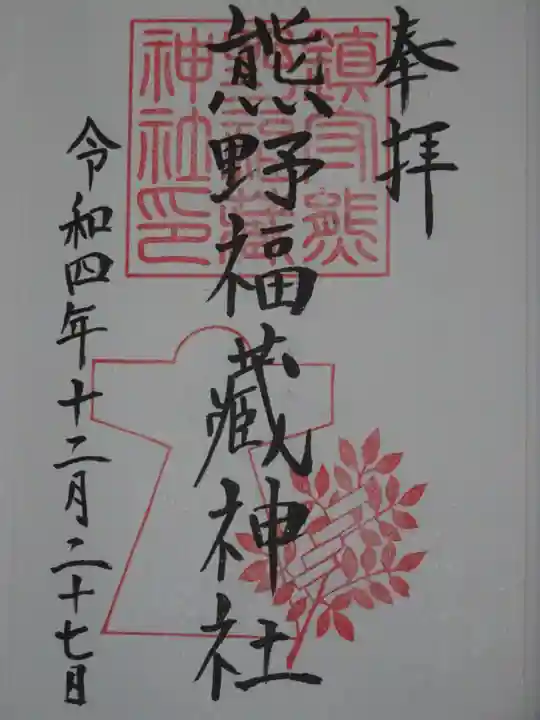 奉拝
熊野福蔵神社
令和四年十二月二十七日
鎮守熊
野福蔵
神社印